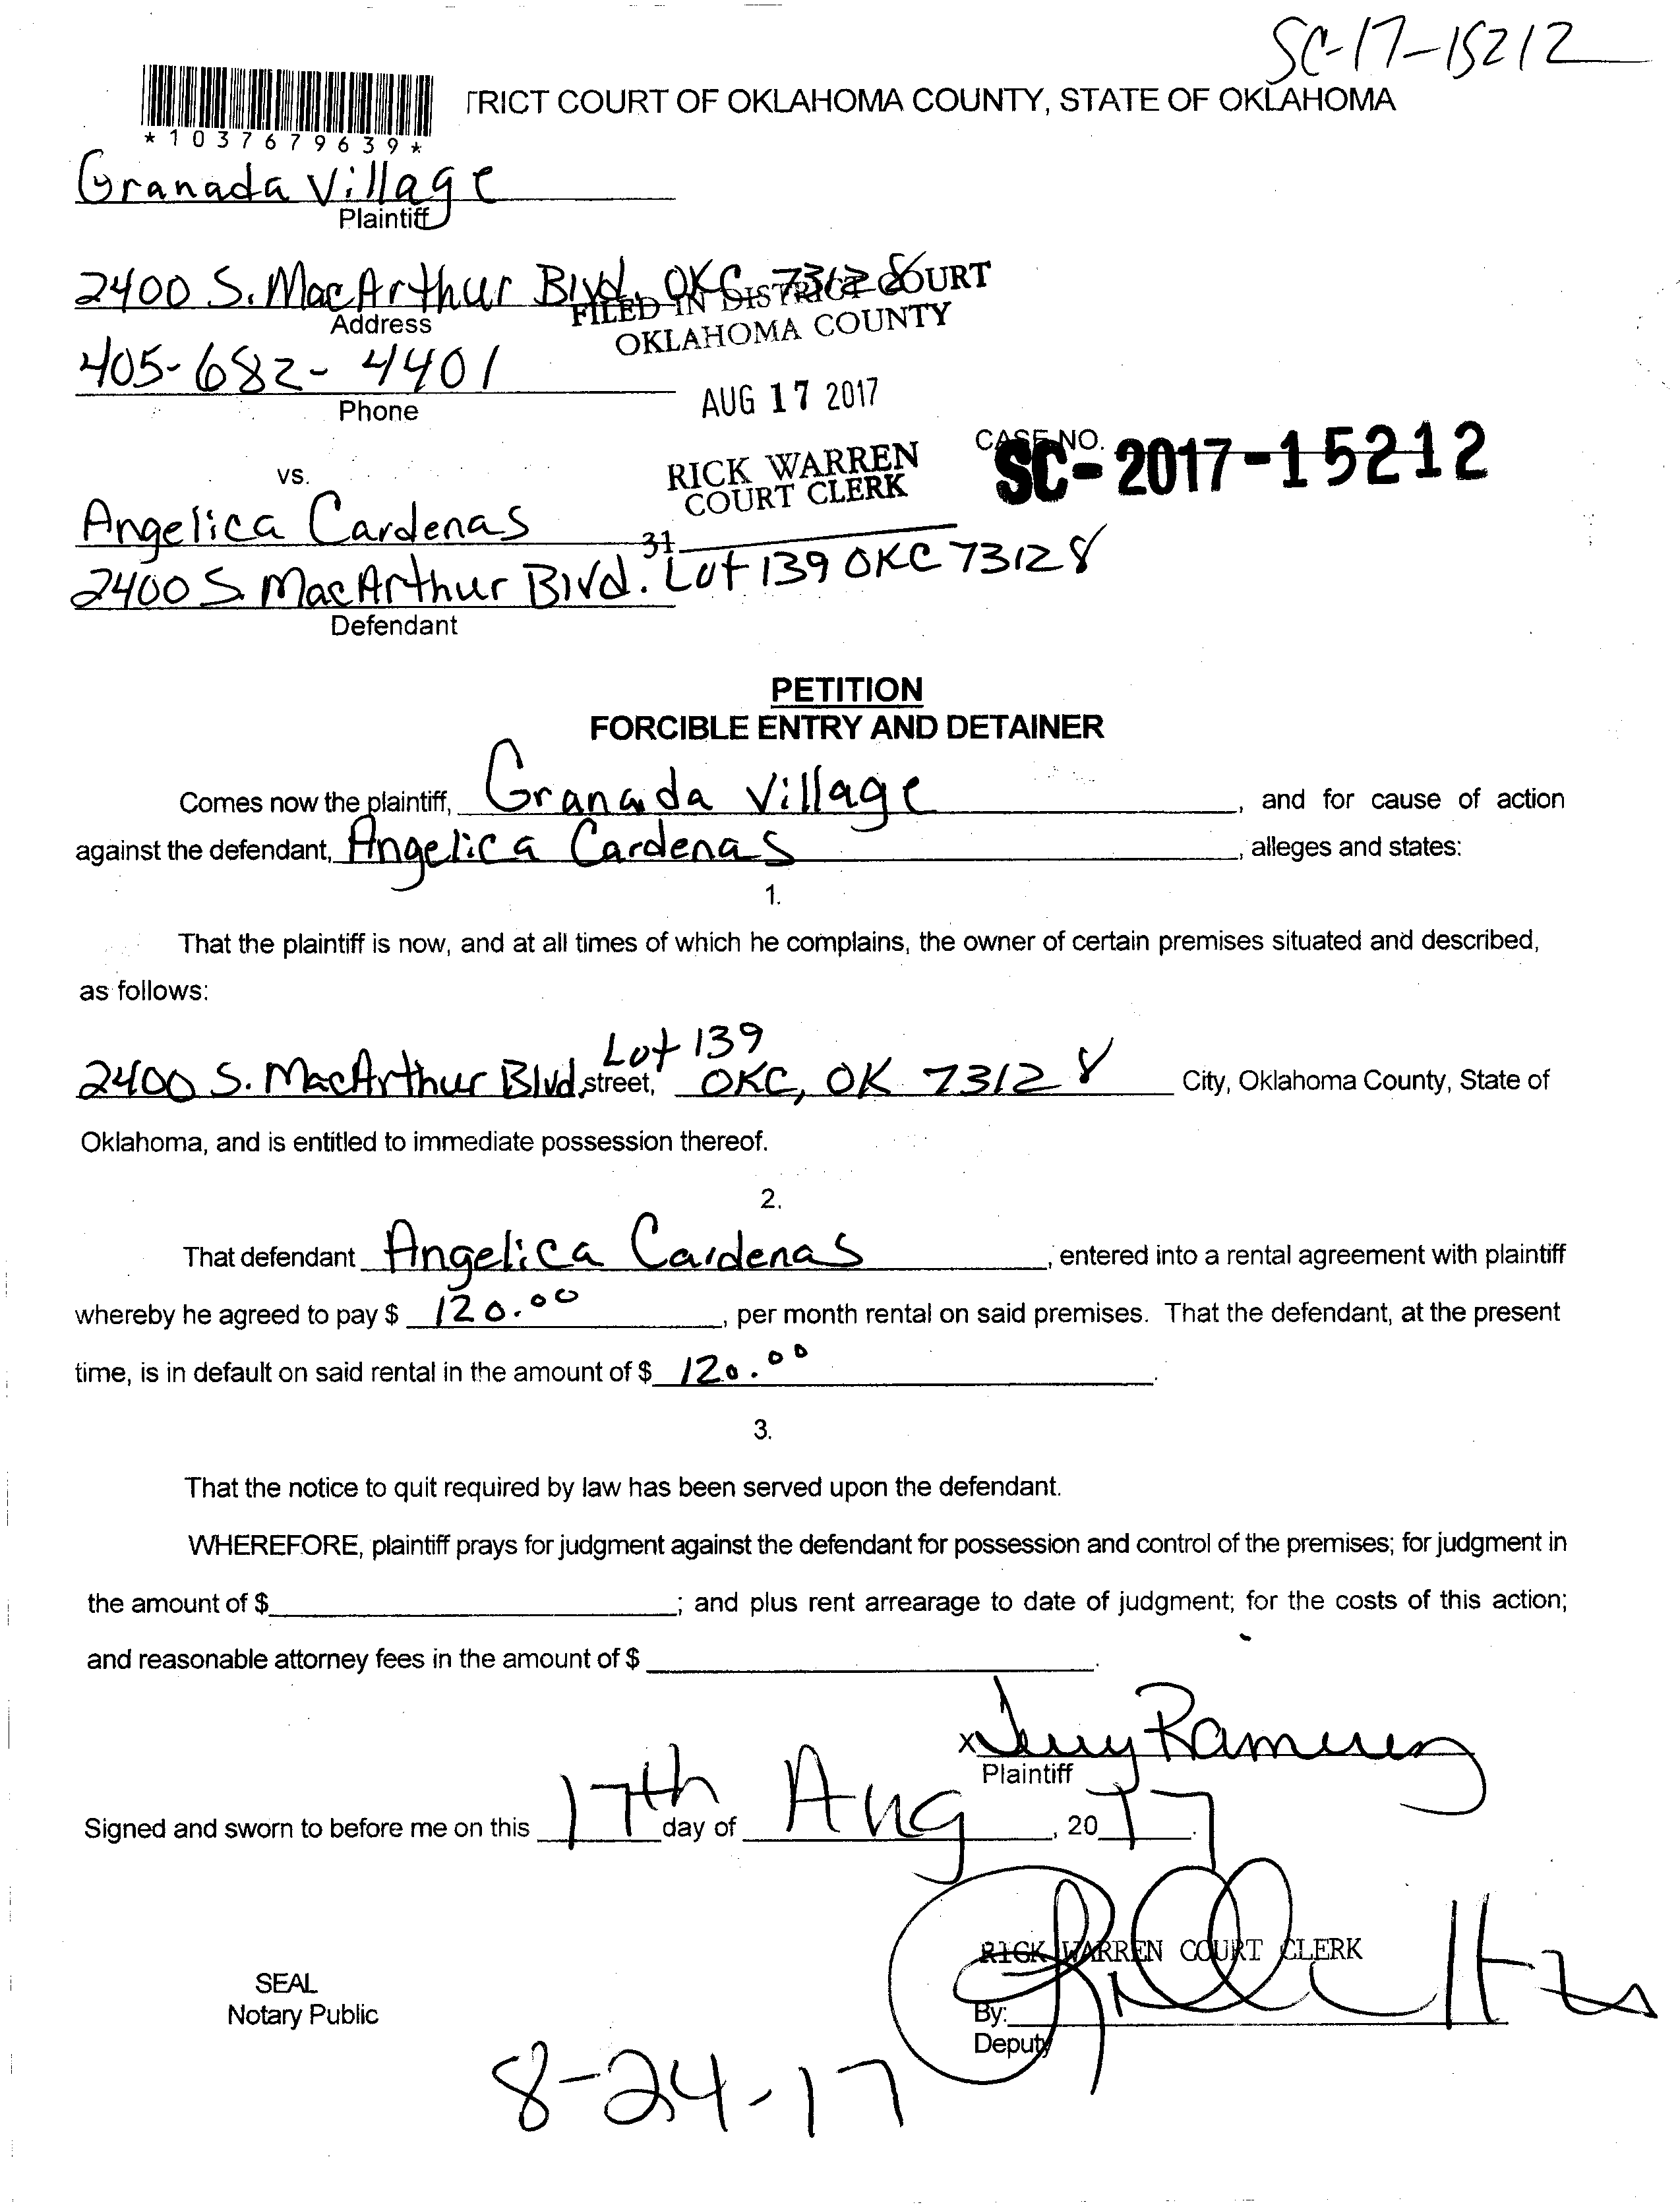 SC-17-15212
TRICT COURT OF OKLAHOMA COUNTY, STATE OF OKLAHOMA
*1037679639*
Granada Village
Plaintiff
2400 S. MacArthur Blvd. OKC 73128
FILED IN DISTRICT COURT
Address
OKLAHOMA COUNTY
405-682-4401
Phone
AUG 17 2017
RICK WARREN
COURT CLERK
CASE NO.
SC-2017-15212
vs.
Angelica Cardenas
31
2400 S MacArthur Blvd. Lot 139 OKC 73128
Defendant
PETITION
FORCIBLE ENTRY AND DETAINER
Comes now the plaintiff, Granada Village, and for cause of action
against the defendant, Angelica Cardenas, alleges and states:
1.
That the plaintiff is now, and at all times of which he complains, the owner of certain premises situated and described,
as follows:
Lot 139
2400 S. MacArthur Blvd. street, OKC, OK 73128 City, Oklahoma County, State of
Oklahoma, and is entitled to immediate possession thereof.
2.
That defendant Angelica Cardenas, entered into a rental agreement with plaintiff
whereby he agreed to pay $ 120.00, per month rental on said premises. That the defendant, at the present
time, is in default on said rental in the amount of $ 120.00.
3.
That the notice to quit required by law has been served upon the defendant.
WHEREFORE, plaintiff prays for judgment against the defendant for possession and control of the premises; for judgment in
the amount of $ ; and plus rent arrearage to date of judgment; for the costs of this action;
and reasonable attorney fees in the amount of $ .
x Ramirez
Plaintiff
Signed and sworn to before me on this 17th day of Aug, 2017.
RICK WARREN COURT CLERK
SEAL
Notary Public
By:
Deputy
8-24-17